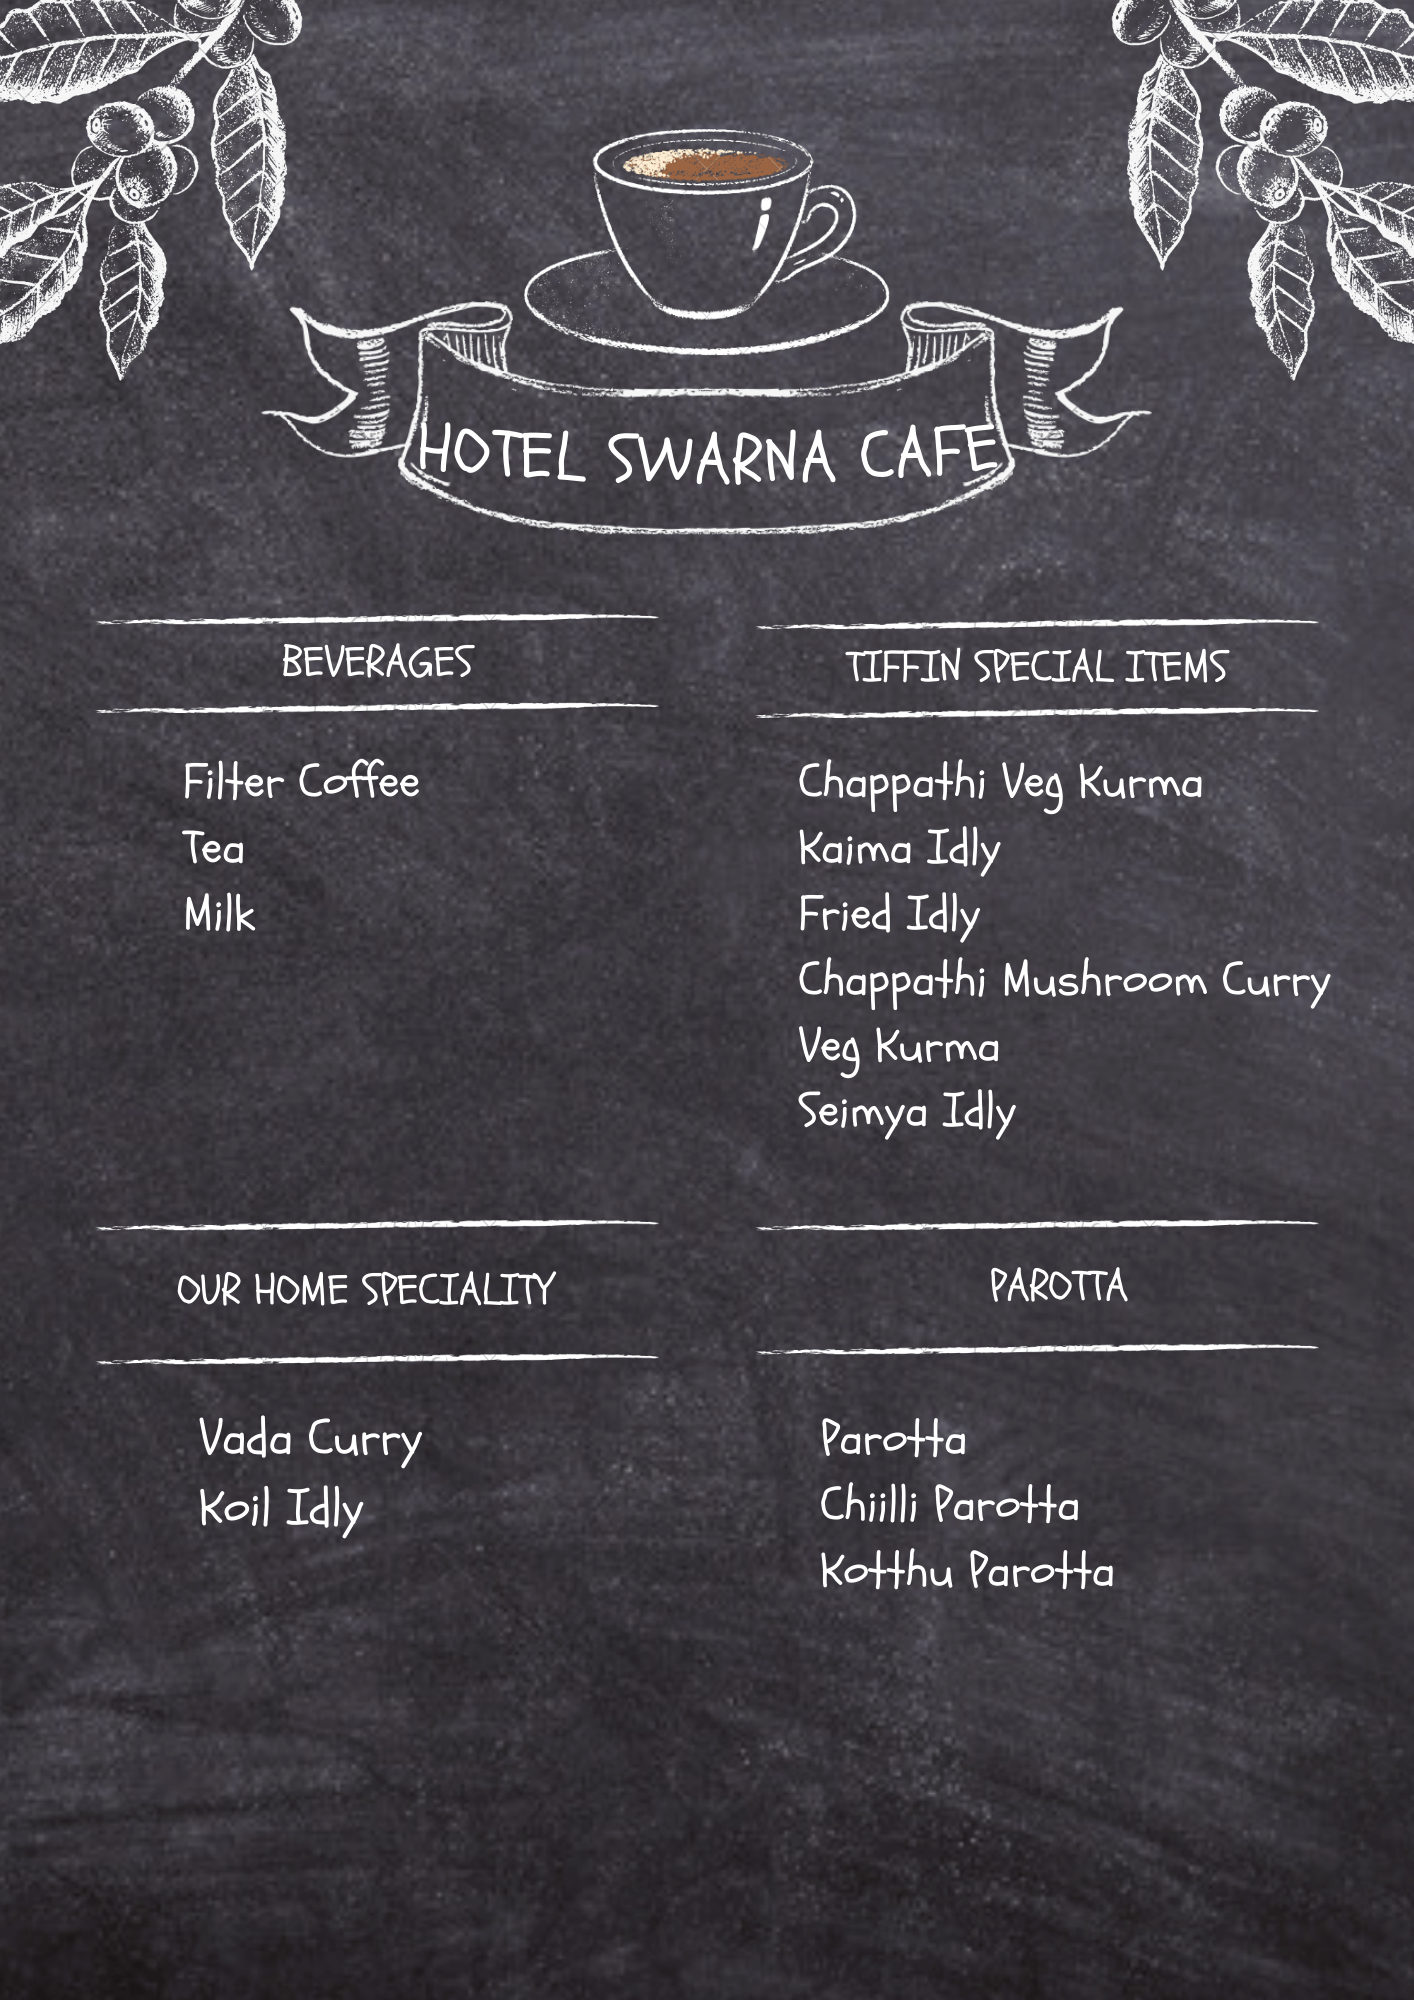 HOTEL SWARNA CAFE
BEVERAGES
Filter Coffee
Tea
Milk
TIFFIN SPECIAL ITEMS
Chappathi Veg Kurma
Kaima Idly
Fried Idly
Chappathi Mushroom Curry
Veg Kurma
Seimya Idly
OUR HOME SPECIALITY
Vada Curry
Koil Idly
PAROTTA
Parotta
Chiilli Parotta
Kotthu Parotta